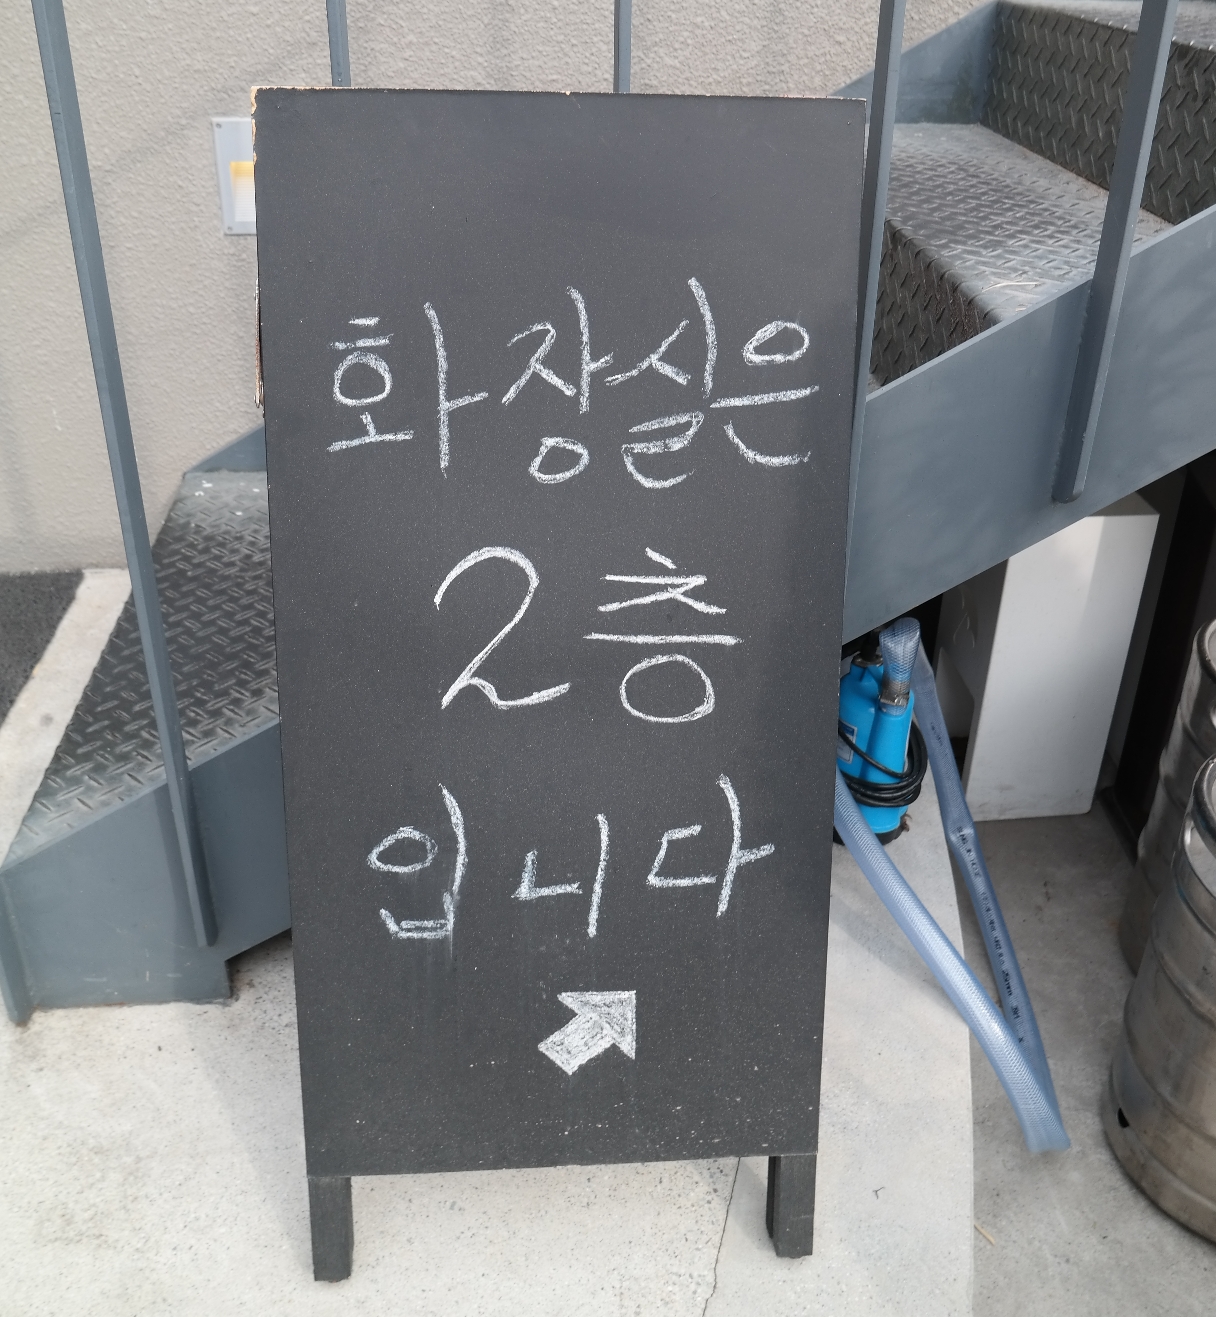 화장실은
2층
입니다